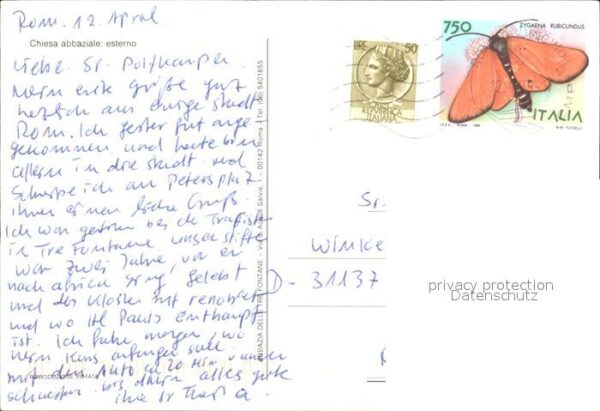 Rom. 12. April.
Chiesa abbaziale: esterno
Liebe Sr.
Mein erste Grüße gut
herzlich aus ewige Stadt
Rom. Ich gester gut ange-
gekommen und heute bin
allein in die Stadt. und
Schreibe ich am Petersplatz
ihnen einen liebe Gruß.
Ich war gestern bei de Trapisten
in Tre Fontane unser stifter
war zwei Jahre, vor er
nach africa ging gelebt
und das Kloster mit renoviert
und wo Hl Paulus enthaupt
ist. Ich fahre morgen, wo
mein Kurs anfangen soll
mit dem Auto ca 20 Min
bis dahin alles gute
ihre Sr
RIPRODUZIONE VIETATA
ABBAZIA DELLE TRE FONTANE - Via Acque Salvie, 1 - 00142 Roma - Tel. (06) 5401655
LIRE 50
REPVBBLICA
ITALIANA
750
ZYGAENA RUBICUNDUS
ITALIA
Sr.
Winke
D-31137
privacy protection
Datenschutz